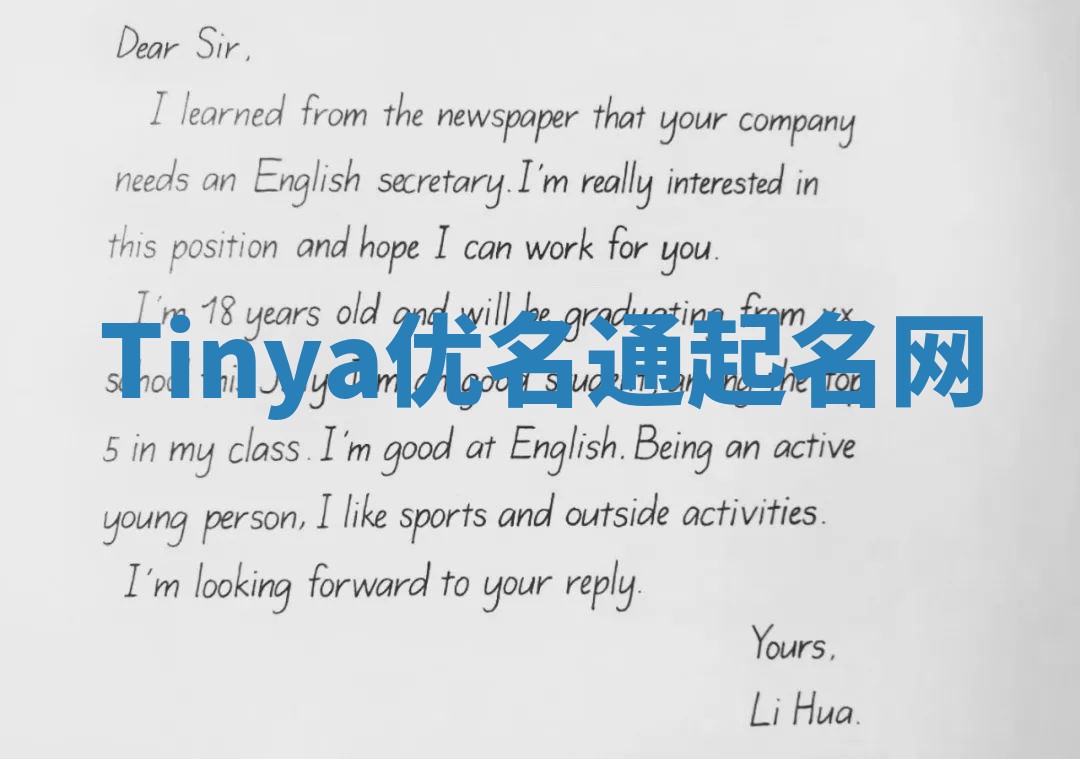 Dear Sir,
I learned from the newspaper that your company
needs an English secretary. I'm really interested in
this position and hope I can work for you.
I'm 18 years old and will be graduating from xx
Tinya优名通起名网
school this July. I'm a good student, among the top
5 in my class. I'm good at English. Being an active
young person, I like sports and outside activities.
I'm looking forward to your reply.
Yours,
Li Hua.